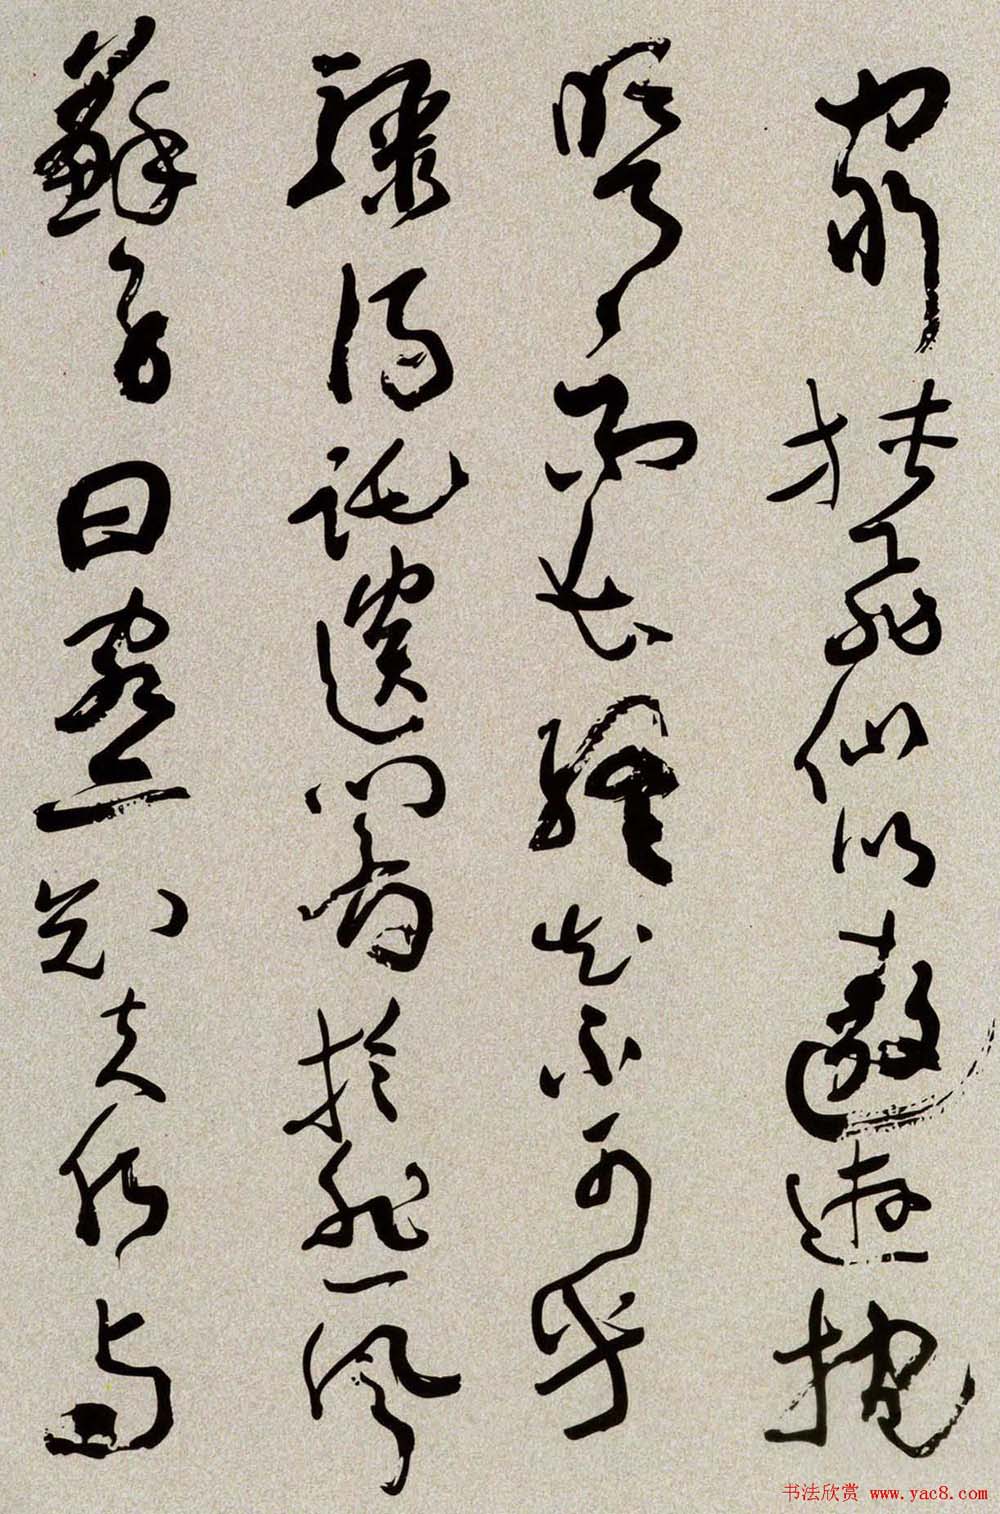 窮挾飛仙以遨遊抱
明月而長終知不可乎
驟得託遺響於悲風
蘇子曰客亦知夫水与
书法欣赏 www.yac8.com